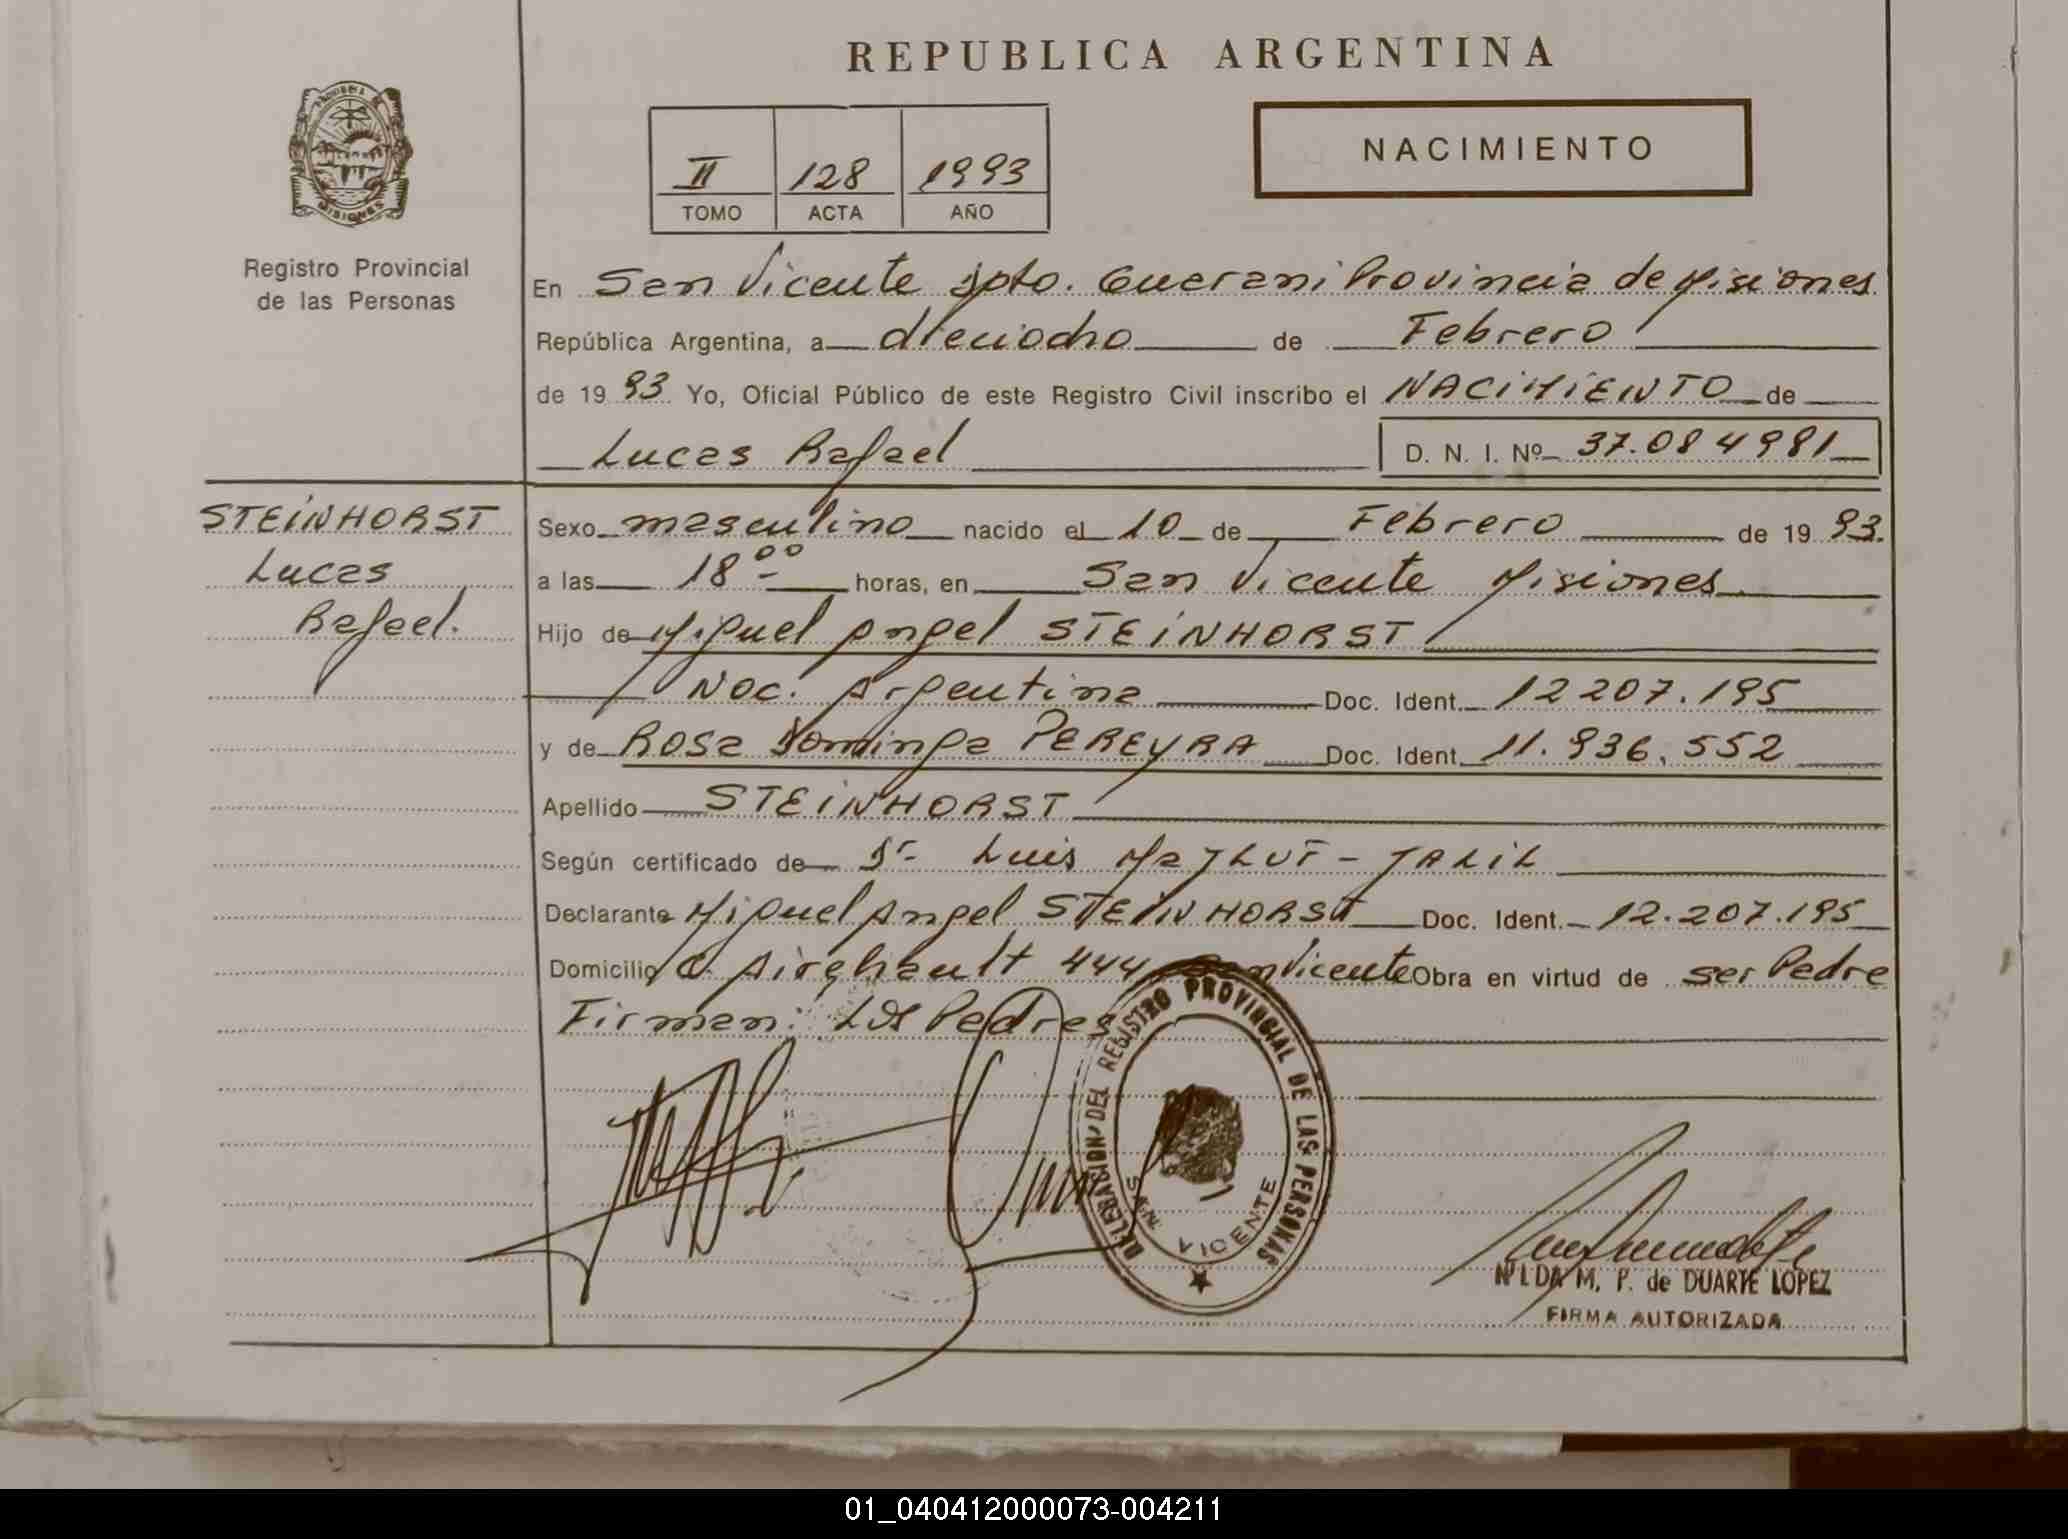 REPUBLICA ARGENTINA
PROVINCIA
MISIONES
Registro Provincial
de las Personas
II 128 1993
TOMO ACTA AÑO
NACIMIENTO
En San Vicente Dpto. Guarani Provincia de Misiones
República Argentina, a dieciocho de Febrero
de 19 93 Yo, Oficial Público de este Registro Civil inscribo el NACIMIENTO de
Lucas Rafael D. N. I. Nº 37.084981
STEINHORST
Lucas
Rafael.
Sexo masculino nacido el 10 de Febrero de 19 93.
a las 18⁰⁰ horas, en San Vicente Misiones
Hijo de Miguel Angel STEINHORST
Nac. Argentina Doc. Ident. 12207.195
y de Rosa Dominga PEREYRA Doc. Ident. 11.936.552
Apellido STEINHORST
Según certificado de Dr Luis JALIL
Declarante Miguel Angel STEINHORST Doc. Ident. 12.207.195
Domicilio 444 San Vicente Obra en virtud de ser Padre
Firman: Los Padres
DELEGACION DEL REGISTRO PROVINCIAL DE LAS PERSONAS
SAN VICENTE
NILDA M. P. de DUARTE LOPEZ
FIRMA AUTORIZADA
01_040412000073-004211